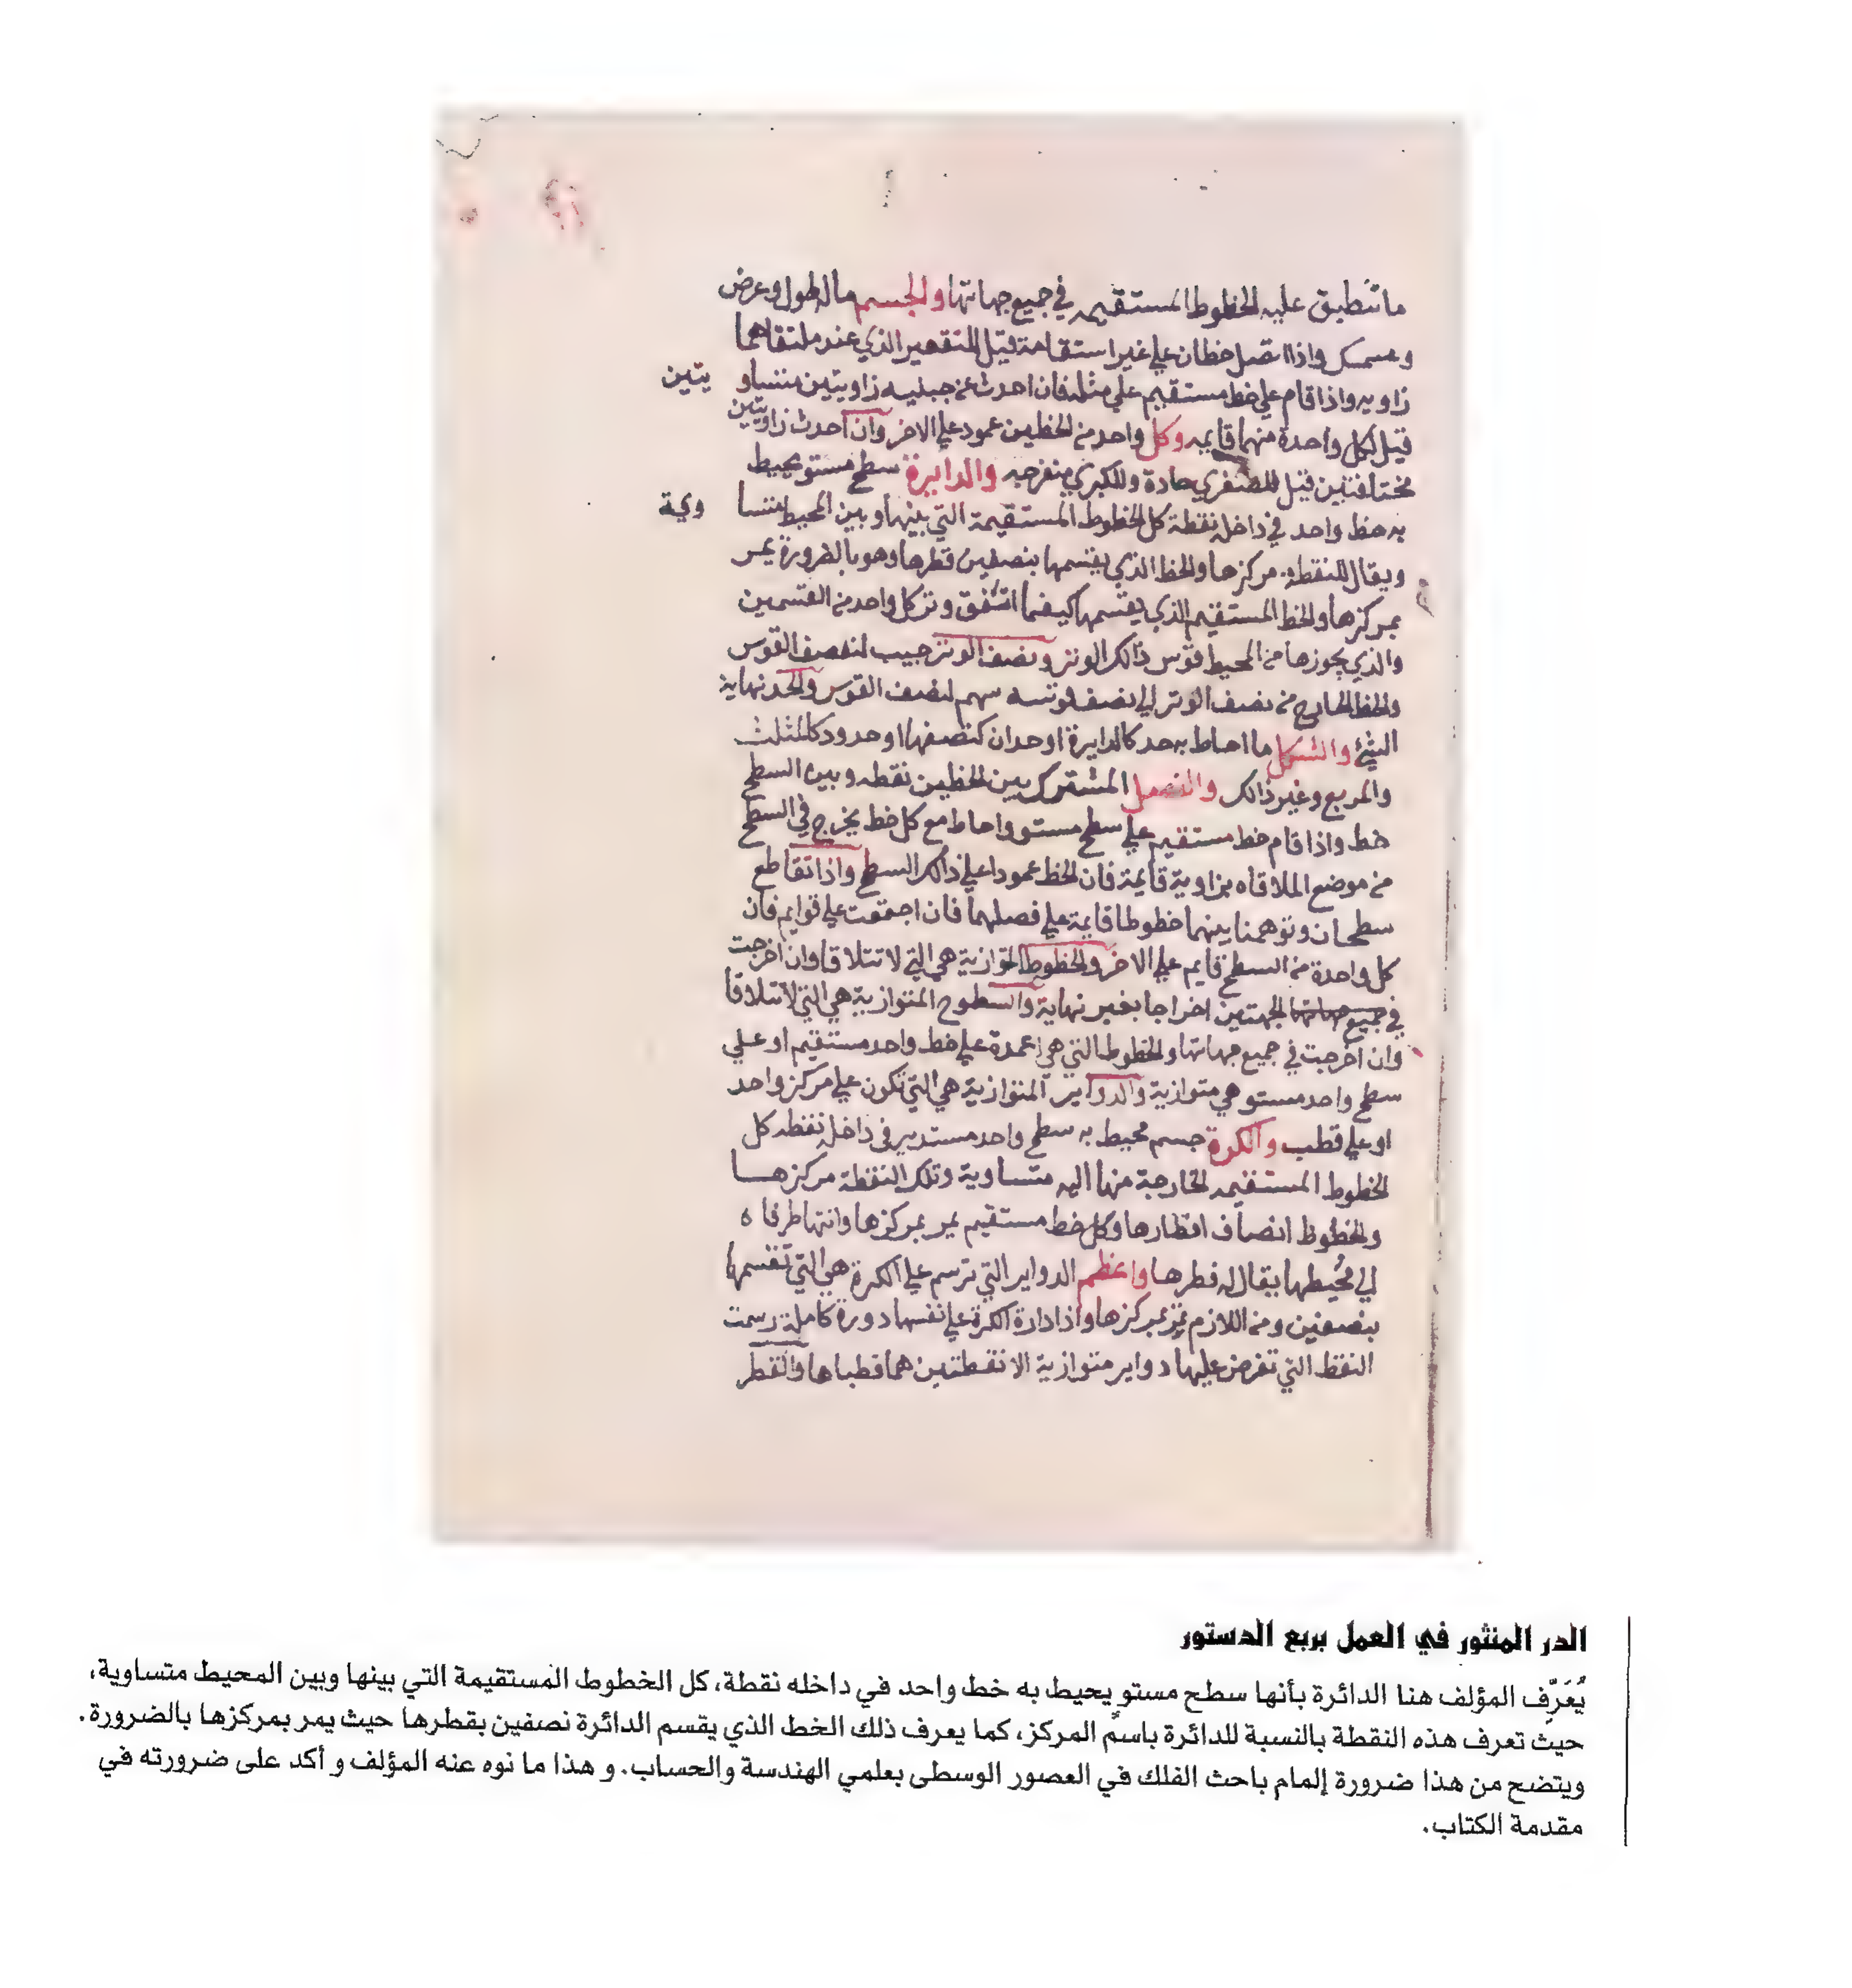 ما تنطبق عليه الخطوط المستقيمه في جميع جهاتها والجسم ماله طول وعرض
وسمك واذا اتصل خطان علي غير استقامة قيل للتقعير الذي عند ملتقاهما
زاويه واذا قام علي خط مستقيم علي مثله فان احدث عن جبنيه زاويتين متساو يتين
قيل لكل واحدة منهما قايمه وكل واحد من الخطين عمود علي الاخر وان احدث زاويتين
مختلفتين قيل للصغري حادة وللكبري منفرجه والدايرة سطح مستو يحيط
به خط واحد في داخله نقطة كل الخطوط المستقيمة التي بينها وبين المحيط متسا وية
ويقال للنقطة مركزها والخط الذي يقسمها بنصفين قطرها وهو بالضرورة يمر
بمركزها والخط المستقيم الذي يقسمها كيفما اتفق وتر كل واحد من القسمين
والذي يجوزها من المحيط قوس ذالك الوتر ونصف الوتر جيب لنصف القوس
والخط الخارج من نصف الوتر الي نصف قوسه سهم لنصف القوس والحد نهاية
الشئ والشكل ما احاط به حد كالدايرة او حدان كنصفها او حدود كالمثلث
والمربع وغير ذالك والفصل المشترك بين الخطين نقطه وبين السطح
خط واذا قام خط مستقيم علي سطح مستو واحاط مع كل خط يخرج في السطح
من موضع الملاقاه بزاوية قايمة فان الخط عمودا علي ذالك السطح واذا تقاطع
سطحان وتوهمنا بينهما خطوطا قايمة علي فصلهما فان اجتمعت علي قوايم فان
كل واحدة من السطح قايم علي الاخر والخطوط المتوازية هي التي لا تتلاقا وان اخرجت
في جميع جهاتها الجهتين اخراجا بغير نهاية والسطوح المتوازية هي التي لا تتلاقا
وان اخرجت في جميع جهاتها والخطوط التي هي اعمدة علي خط واحد مستقيم او علي
سطح واحد مستو هي متوازية والدواير المتوازية هي التي تكون علي مركز واحد
او علي قطب والكرة جسم محيط به سطح واحد مستدير في داخله نقطه كل
الخطوط المستقيمه الخارجة منها اليه متساوية وتلك النقطة مركزها
والخطوط انصاف اقطارها وكل خط مستقيم يمر بمركزها وانتها طرفاه
الي محيطها يقال له قطرها واعظم الدواير التي ترسم علي الكرة هي التي تقسمها
بنصفين ومن اللازم تمر بمركزها واذا ادارة الكرة علي نفسها دورة كاملة رسمت
النقط التي تفرض عليها دواير متوازية الا نقطتين هما قطباها والقطر
الدر المنثور في العمل بربع الدستور
يُعَرِّف المؤلف هنا الدائرة بأنها سطح مستو يحيط به خط واحد في داخله نقطة، كل الخطوط المستقيمة التي بينها وبين المحيط متساوية،
حيث تعرف هذه النقطة بالنسبة للدائرة باسم المركز، كما يعرف ذلك الخط الذي يقسم الدائرة نصفين بقطرها حيث يمر بمركزها بالضرورة.
ويتضح من هذا ضرورة إلمام باحث الفلك في العصور الوسطى بعلمي الهندسة والحساب. و هذا ما نوه عنه المؤلف و أكد على ضرورته في
مقدمة الكتاب.